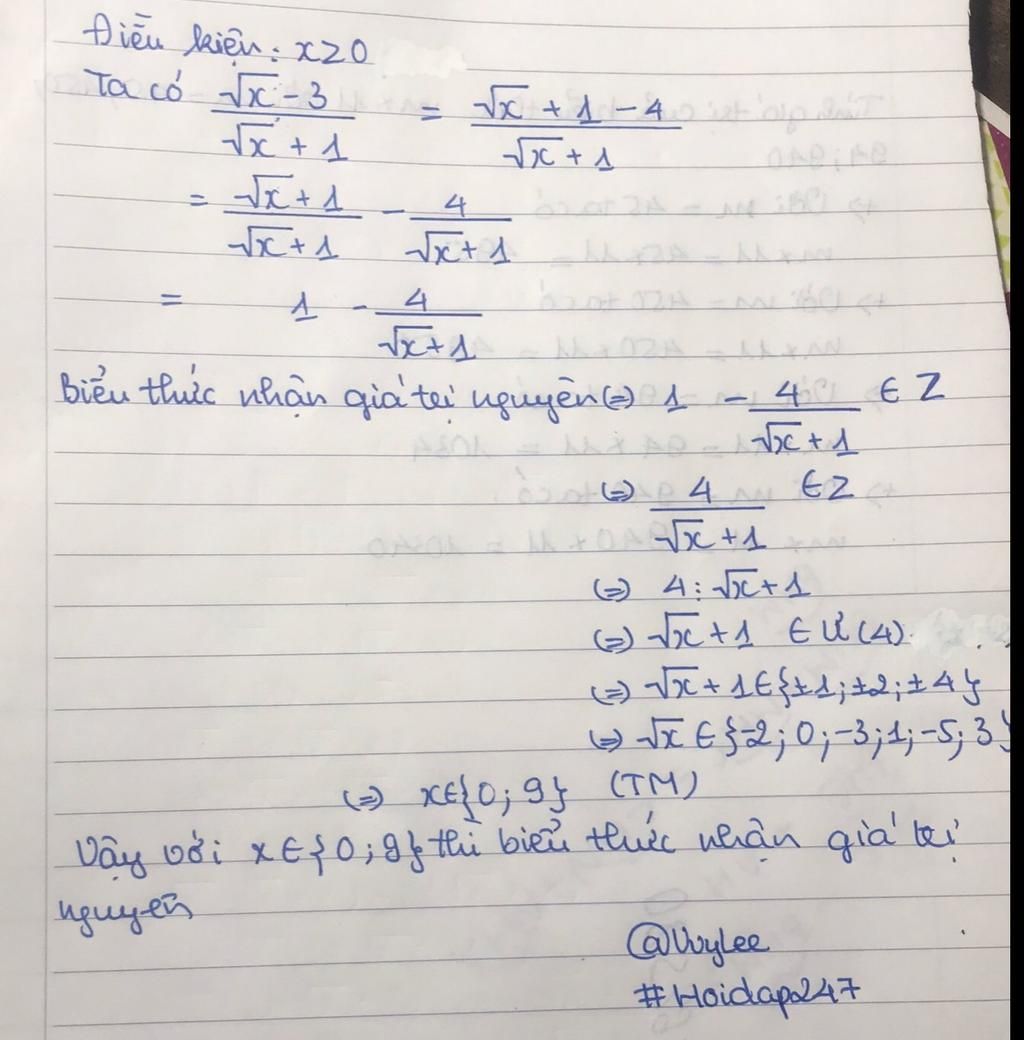 Điều kiện: x≥0
Ta có (√x - 3)/(√x + 1) = (√x + 1 - 4)/(√x + 1)
= (√x + 1)/(√x + 1) - 4/(√x + 1)
= 1 - 4/(√x + 1)
Biểu thức nhận giá trị nguyên (=) 1 - 4/(√x + 1) ∈ Z
(=) 4/(√x + 1) ∈ Z
(=) 4 ⋮ √x + 1
(=) √x + 1 ∈ Ư(4)
(=) √x + 1 ∈ {±1; ±2; ±4}
(=) √x ∈ {-2; 0; -3; 1; -5; 3}
(=) x∈{0; 9} (TM)
Vậy với x ∈ {0; 9} thì biểu thức nhận giá trị
nguyên
@VvyLee
#Hoidap247